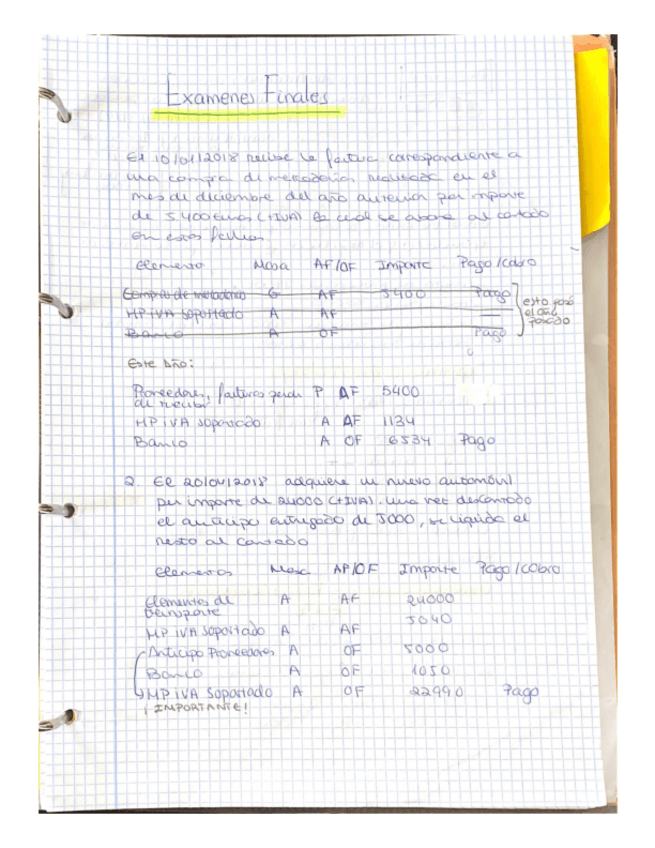 Examenes Finales
El 10/01/2018 recibe la factura correspondiente a
una compra de mercaderías realizada en el
mes de diciembre del año anterior por importe
de 5400 Euros (+IVA) la cual se abona al contado
en estas fechas
Elemento Masa AF/OF Importe Pago/Cobro
Compras de mercaderías G AF 5400 Pago
HP IVA soportado A AF —
Banco A OF Pago
esto pasó
el año
pasado
Este año:
Proveedores, facturas pend. P AF 5400
de recibir
HP IVA soportado A AF 1134
Banco A OF 6534 Pago
2. El 20/04/2018 adquiere un nuevo automóvil
por importe de 24000 (+IVA). Una vez descontado
el anticipo entregado de 5000, se liquida el
resto al contado
Elementos Masa AP/OF Importe Pago/Cobro
Elementos de A AF 24000
transporte
HP IVA Soportado A AF 5040
Anticipo Proveedores A OF 5000
Banco A OF 1050
HP IVA Soportado A OF 22990 Pago
¡IMPORTANTE!